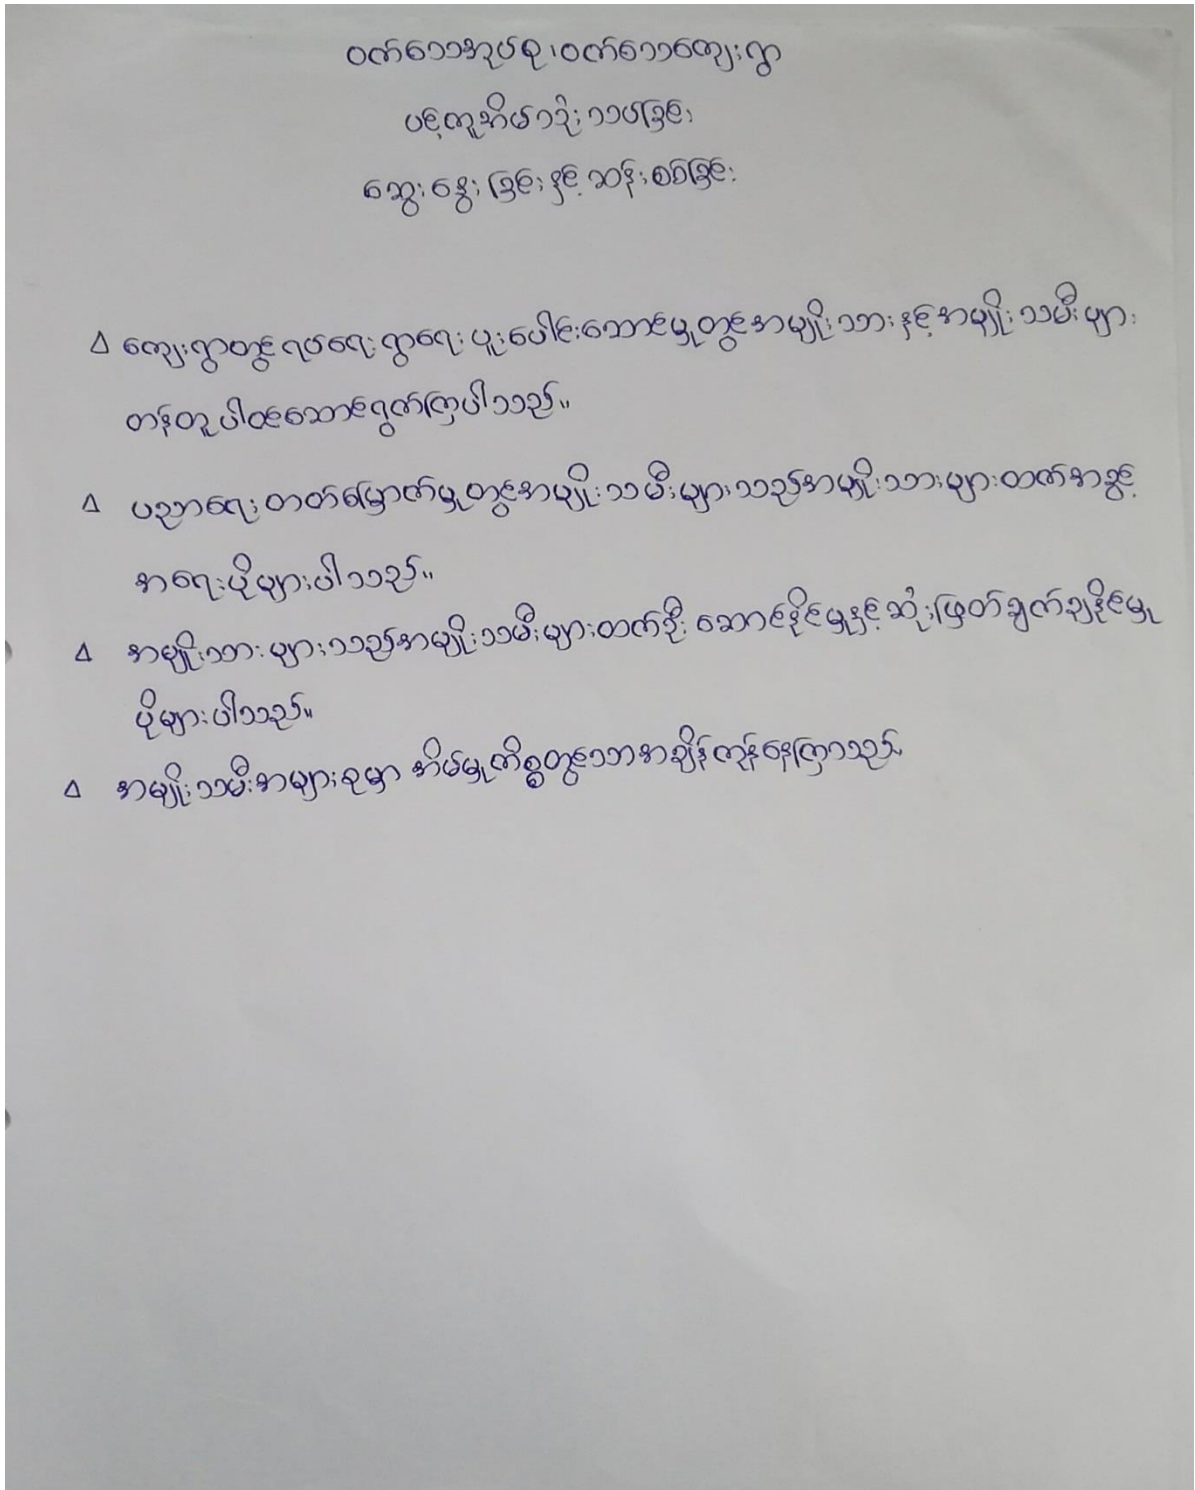 ဝက်သေအုပ်စု၊ ဝက်သေကျေးရွာ
ပင့်ကူအိမ်သဒုံးသပ်ခြင်း
ဆွေးနွေးခြင်းနှင့်ဆန်းစစ်ခြင်း
Δ ကျေးရွာတွင်ရပ်ရေးရွာရေးပူးပေါင်းဆောင်မှုတွင်အမျိုးသားနှင့်အမျိုးသမီးများ
တန်တူပါဝင်ဆောင်ရွက်ကြပါသည်။
Δ ပညာရေးတတ်မြောက်မှုတွင်အမျိုးသမီးများသည်အမျိုးသားများထက်အခွင့်
အရေးပိုများပါသည်။
Δ အမျိုးသားများသည်အမျိုးသမီးများထက်ဦးဆောင်နိုင်မှုနှင့်ဆုံးဖြတ်ချက်ချနိုင်မှု
ပိုများပါသည်။
Δ အမျိုးသမီးအများစုမှာ အိမ်မှုကိစ္စတွင်သာအချိန်ကုန်နေကြသည်